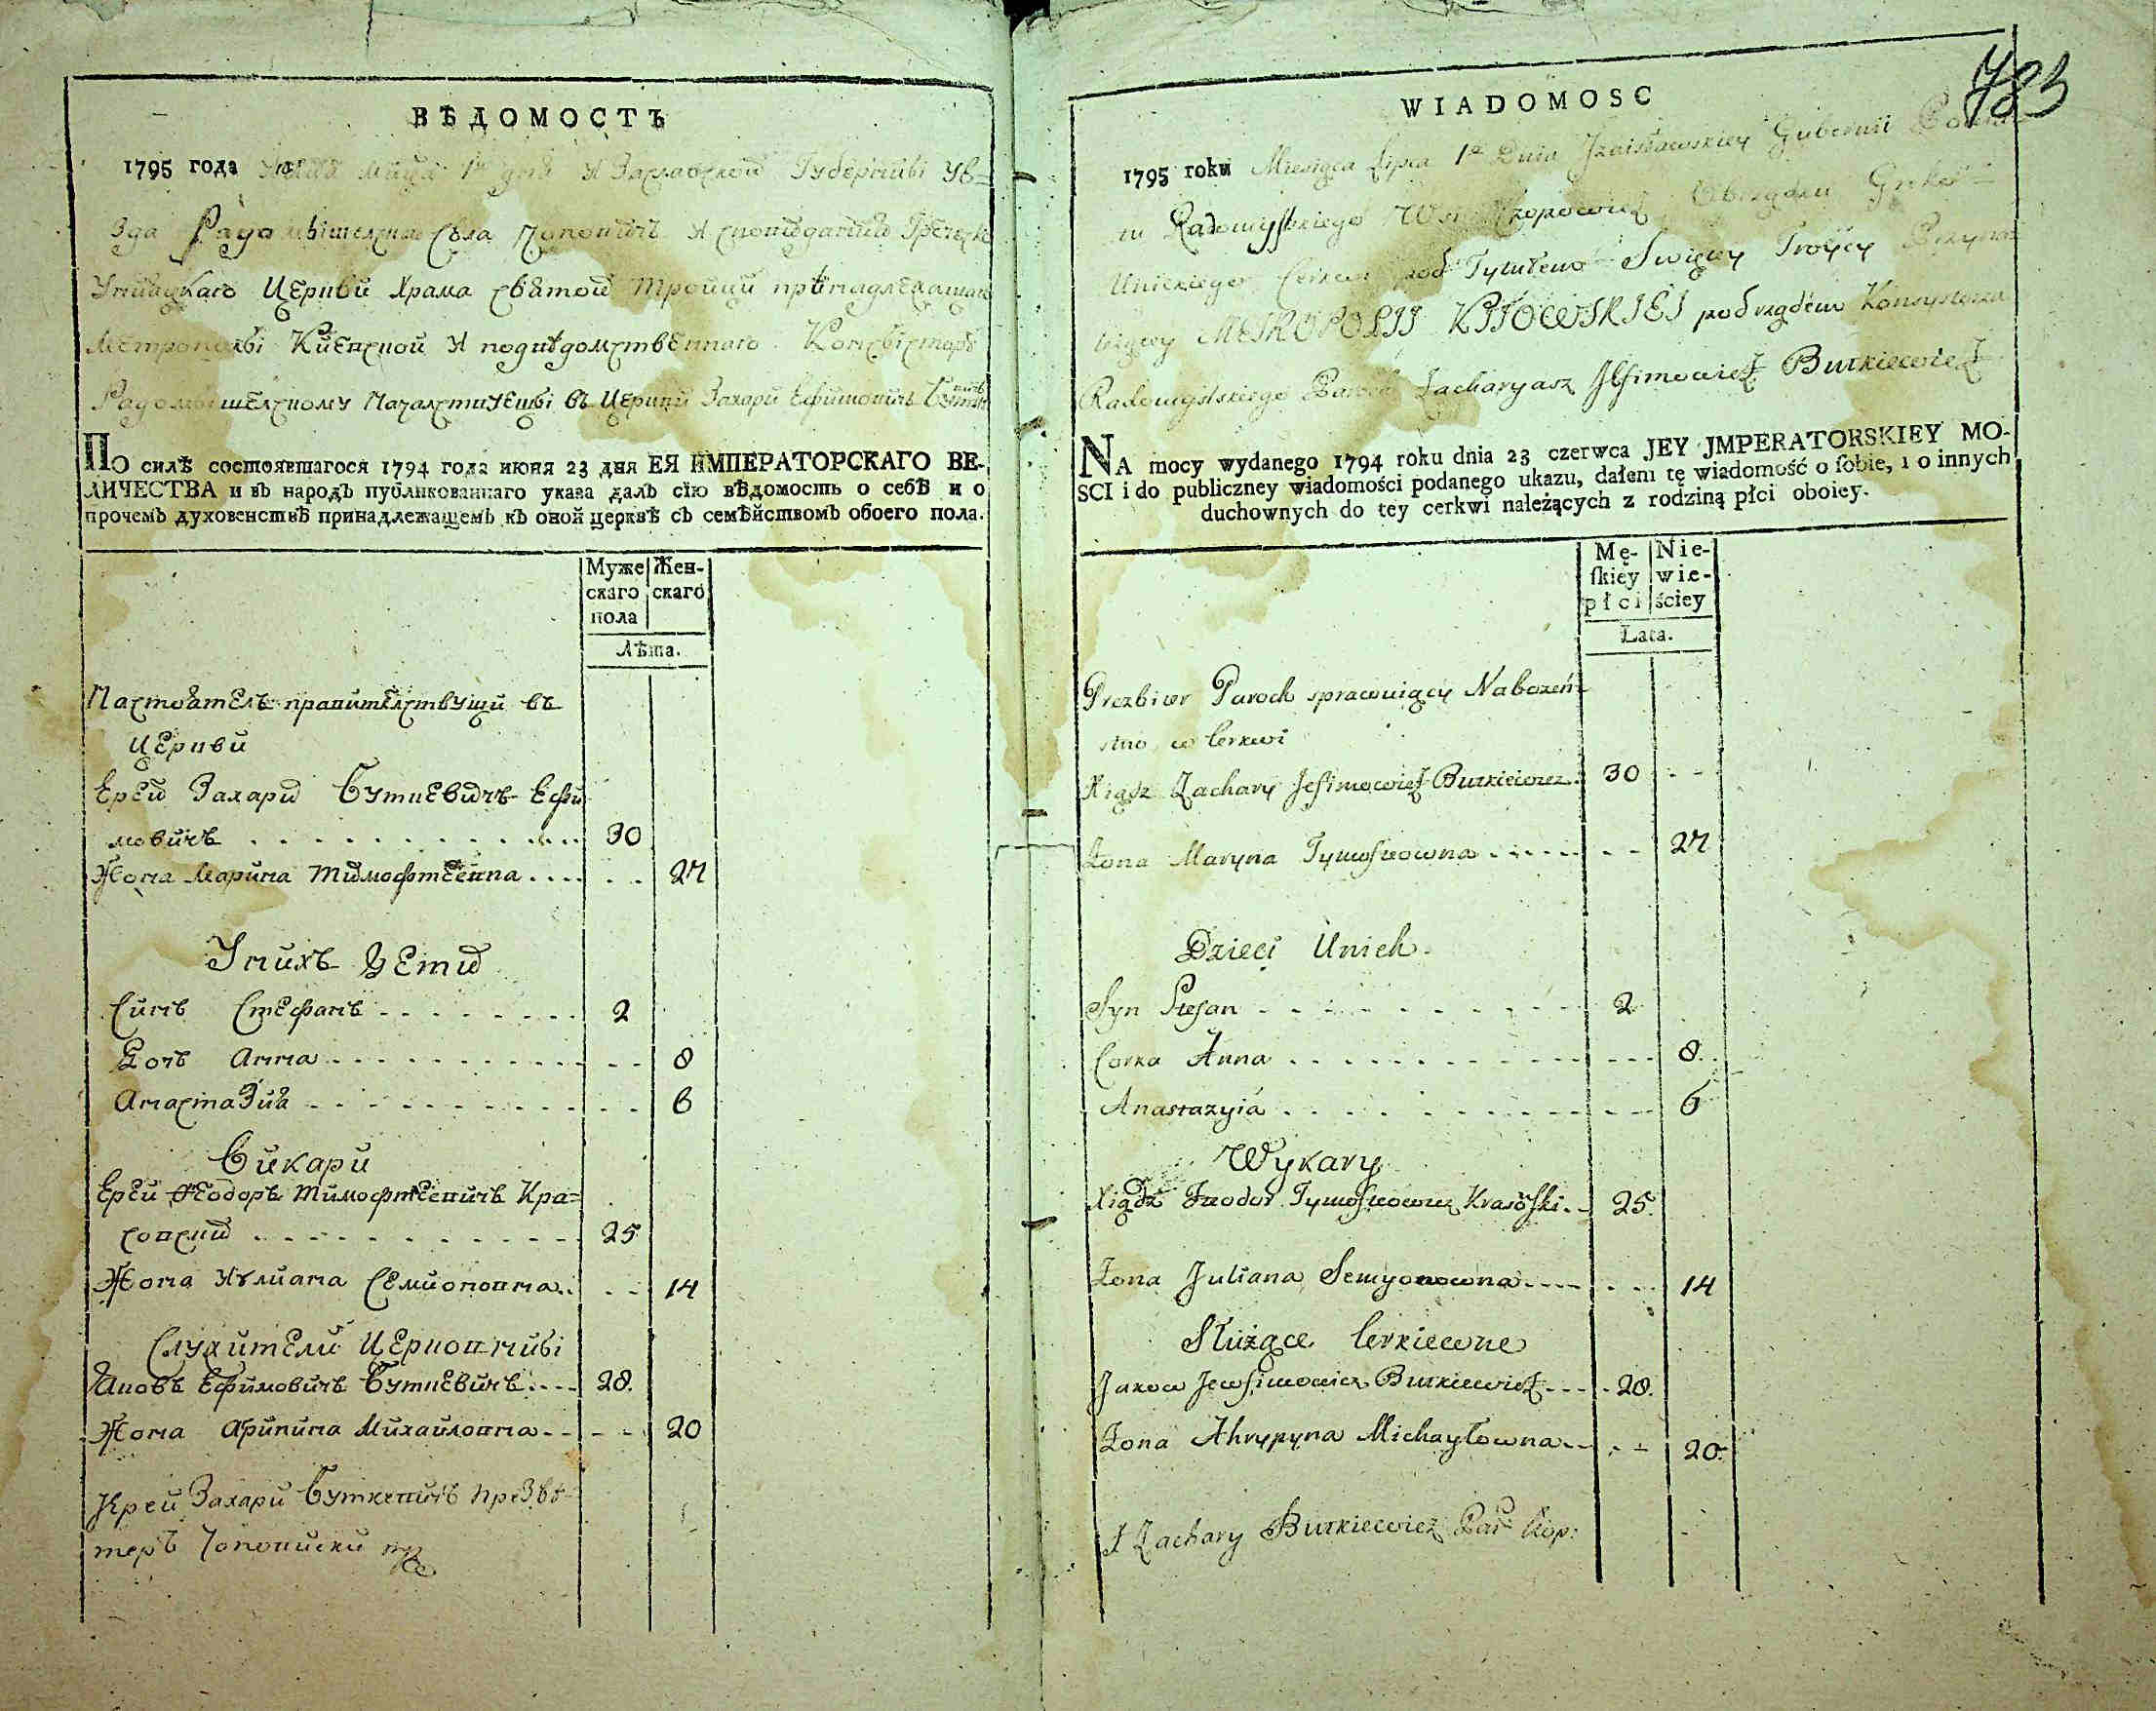 ВѢДОМОСТЬ
1795 года дня Губернїи Уѣ-
зда Села Гречес
Церкви Храма святои Тройци
Метрополїи Киевской и подвѣдомственнаго
Радомышелскому въ Церкви Захари Ефимовичъ
ПО силѣ состоявшагося 1794 года июня 23 дня ЕЯ ИМПЕРАТОРСКАГО ВЕ-
ЛИЧЕСТВА и въ народъ публикованнаго указа далъ сїю вѣдомость о себѣ и о
прочемъ духовенствѣ принадлежащемъ къ оной церквѣ съ семѣйствомъ обоего пола.
Муже Жен-
скаго скаго
пола
Лѣта.
Настоятель правителствущи въ
церкви
Ерей Захари Буткевичъ Ефи
мовичъ 30
Жона Марина Тимофтеевна 27
Унихъ Дети
Синъ Стефанъ 2
Дочъ Анна 8
Анастазия 6
Викари
Ерей Феодоръ Тимофтеевичъ Кра=
совски 25
Жона Иулиана Семионовна 14
Служители Церковниві
Яковъ Ефимовичъ Буткевичъ 28.
Жона Агрипина Михайловна 20
Захари Буткевичъ презвѣ-
теръ
783
WIADOMOSC
1795 roku Miesiąca Lipca 1º Dnia Jzaisławskiey Gubernii Powia-
tu Radomyslskiego Wsi Obrządku Greko-
Unickiego Cerkwi pod Tytułem Swiętey Troycy
METROPOLII KIIOWSKIEI pod rządem Konsystorza
Radomyslskiego Paroch Zacharyasz Jefimowicz Butkiewicz
NA mocy wydanego 1794 roku dnia 23 czerwca JEY JMPERATORSKIEY MO-
SCI i do publiczney wiadomości podanego ukazu, dałem tę wiadomość o ſobie, i o innych
duchownych do tey cerkwi należących z rodziną płci oboiey.
Mę- Nie-
ſkiey wie-
płci ściey
Lata.
Prezbiter Paroch sprawuiący Nabożeń-
stwo w Cerkwi
Xiądz Zachary Jefimowicz Butkiewicz 30
Żona Maryna Tymofieowna 27
Dzieci Unich.
Syn Stefan 2
Corka Anna 8.
Anastazyiá 6
Wykary
Xiądz Teodor Tymofieowicz Krasoſki 25.
Żona Juliana Semyonowna 14
Służące Cerkiewne
Jakow Jewfimowicz Butkiewicz 28.
Żona Ahrypyna Michayłowna 20.
X Zachary Butkiewicz Par: